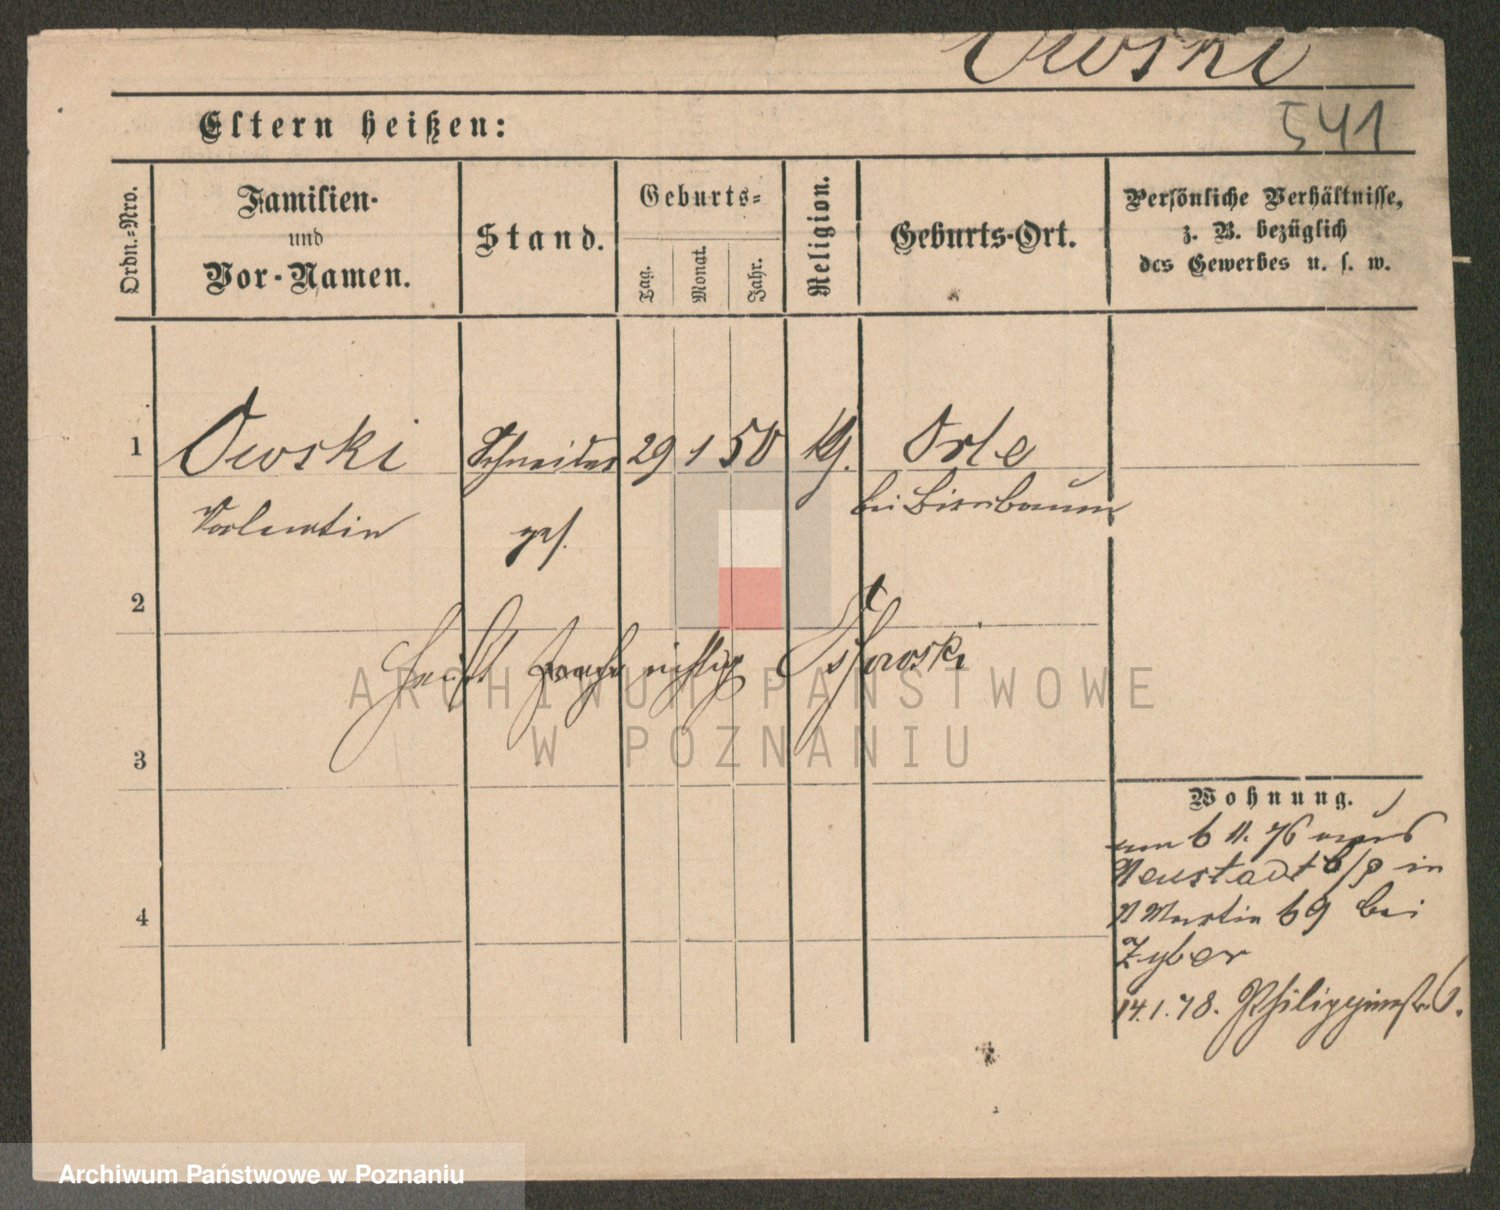 Owski
541
Eltern heißen:
Ordn.-Nro.
Familien-
und
Vor-Namen.
Stand.
Geburts-
Tag.
Monat.
Jahr.
Religion.
Geburts-Ort.
Persönliche Verhältnisse,
z. B. bezüglich
des Gewerbes u. s. w.
1
Owski
Schneider
29
1
50
Orle
Valentin
ges.
bei Birnbaum
2
heißt
richtig
ARCHIWUM PAŃSTWOWE
W POZNANIU
3
Wohnung.
6 11. 76
Neustadt b/P in
St Martin 69 bei
Zyber
4
14.1.78. Philippinenstr. 6.
Archiwum Państwowe w Poznaniu